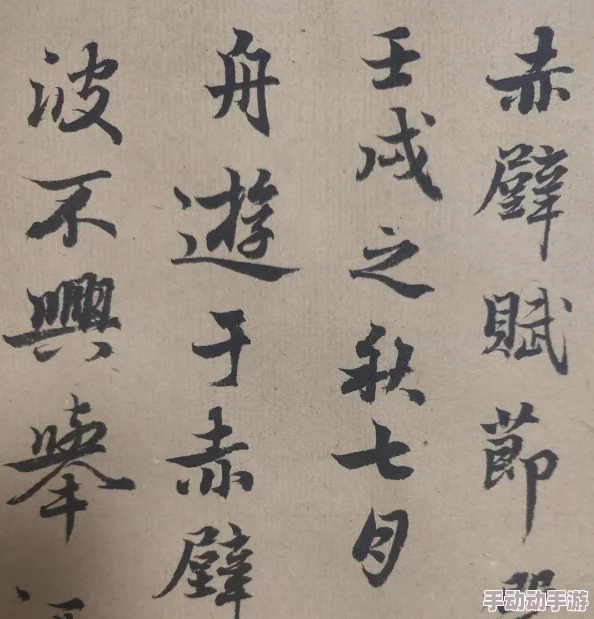 赤壁賦節
壬戌之秋七月
舟遊于赤壁
波不興舉酒
手动动手游